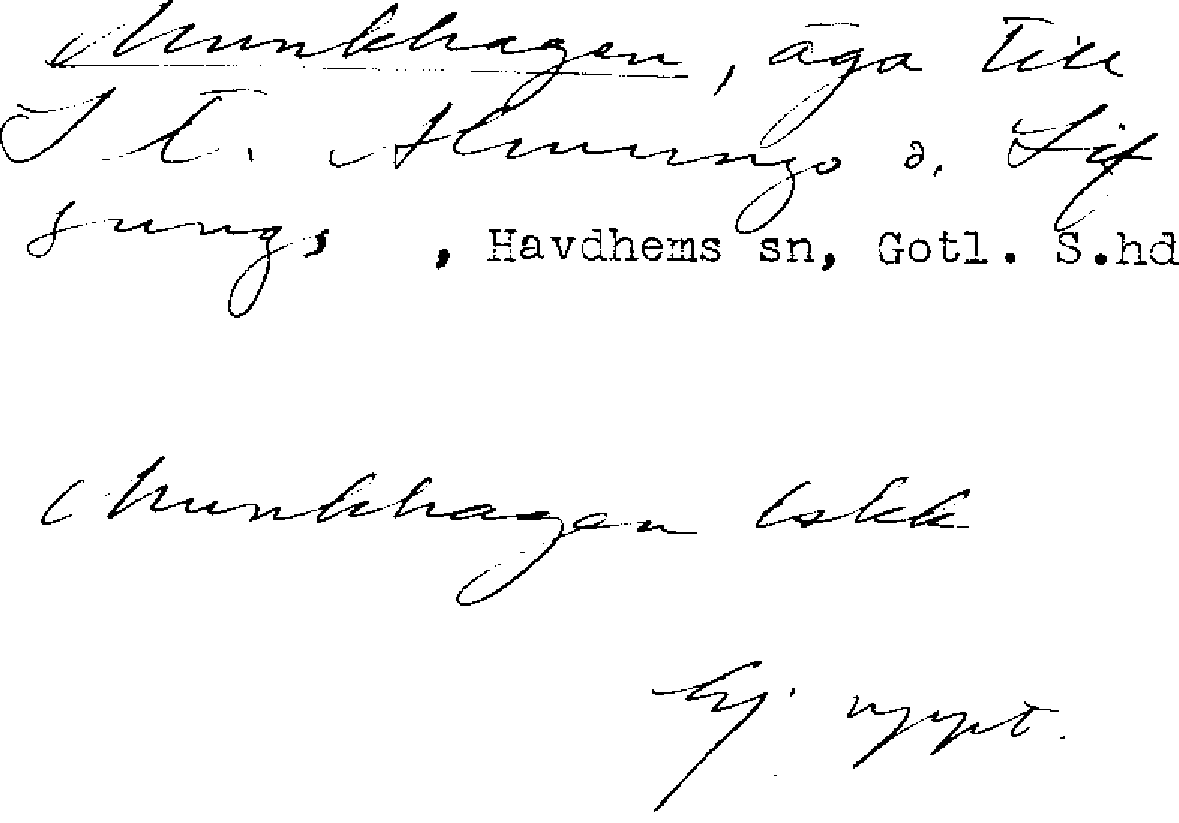 Munkhagen, äga till
St. Almungs o. Lif
sungs, Havdhems sn, Gotl. S.hd
Munkhagen lskk
Ej uppt.